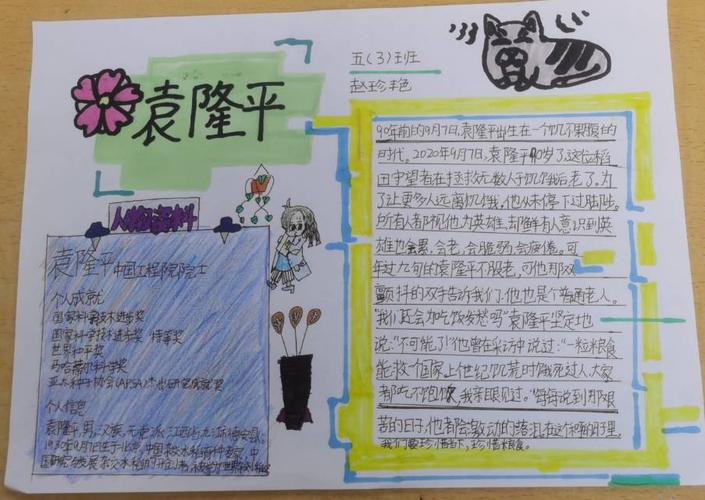 袁隆平
五(3)班
赵珍艳
人物资料
袁隆平中国工程院院士
个人成就
国家科学技术进步奖
国家科学技术进步奖 特等奖
世界和平奖
马哈蒂尔科学奖
亚太种子协会(APSA)杰出研究成就奖
个人信息
袁隆平,男,汉族,无党派,江西省九江市德安县,
1930年9月7日生于北京,中国杂交水稻育种专家,中
国研究与发展杂交水稻的开创者,被誉为世界
90年前的9月7日,袁隆平出生在一个饥不果腹的
时代。2020年9月7日,袁隆平90岁了,这位稻
田守望者在拯救无数人于饥饿后老了。为
了让更多人远离饥饿,他从未停下过脚步。
所有人都视他为英雄,却鲜有人意识到英
雄也会累,会老,会脆弱,会疲倦。可
年过九旬的袁隆平不服老,可他那双
颤抖的双手告诉我们,他也是个普通老人。
"我们还会为吃饭发愁吗"袁隆平坚定地
说:"不可能了!"他曾在采访中说过:"一粒粮食
能救一个国家,上世纪饥荒时饿死过人,大家
都吃不饱饭,我亲眼见过。"每每说到那艰
苦的日子,他都会激动的落泪,在这个美好
我们要珍惜当下,珍惜粮食。